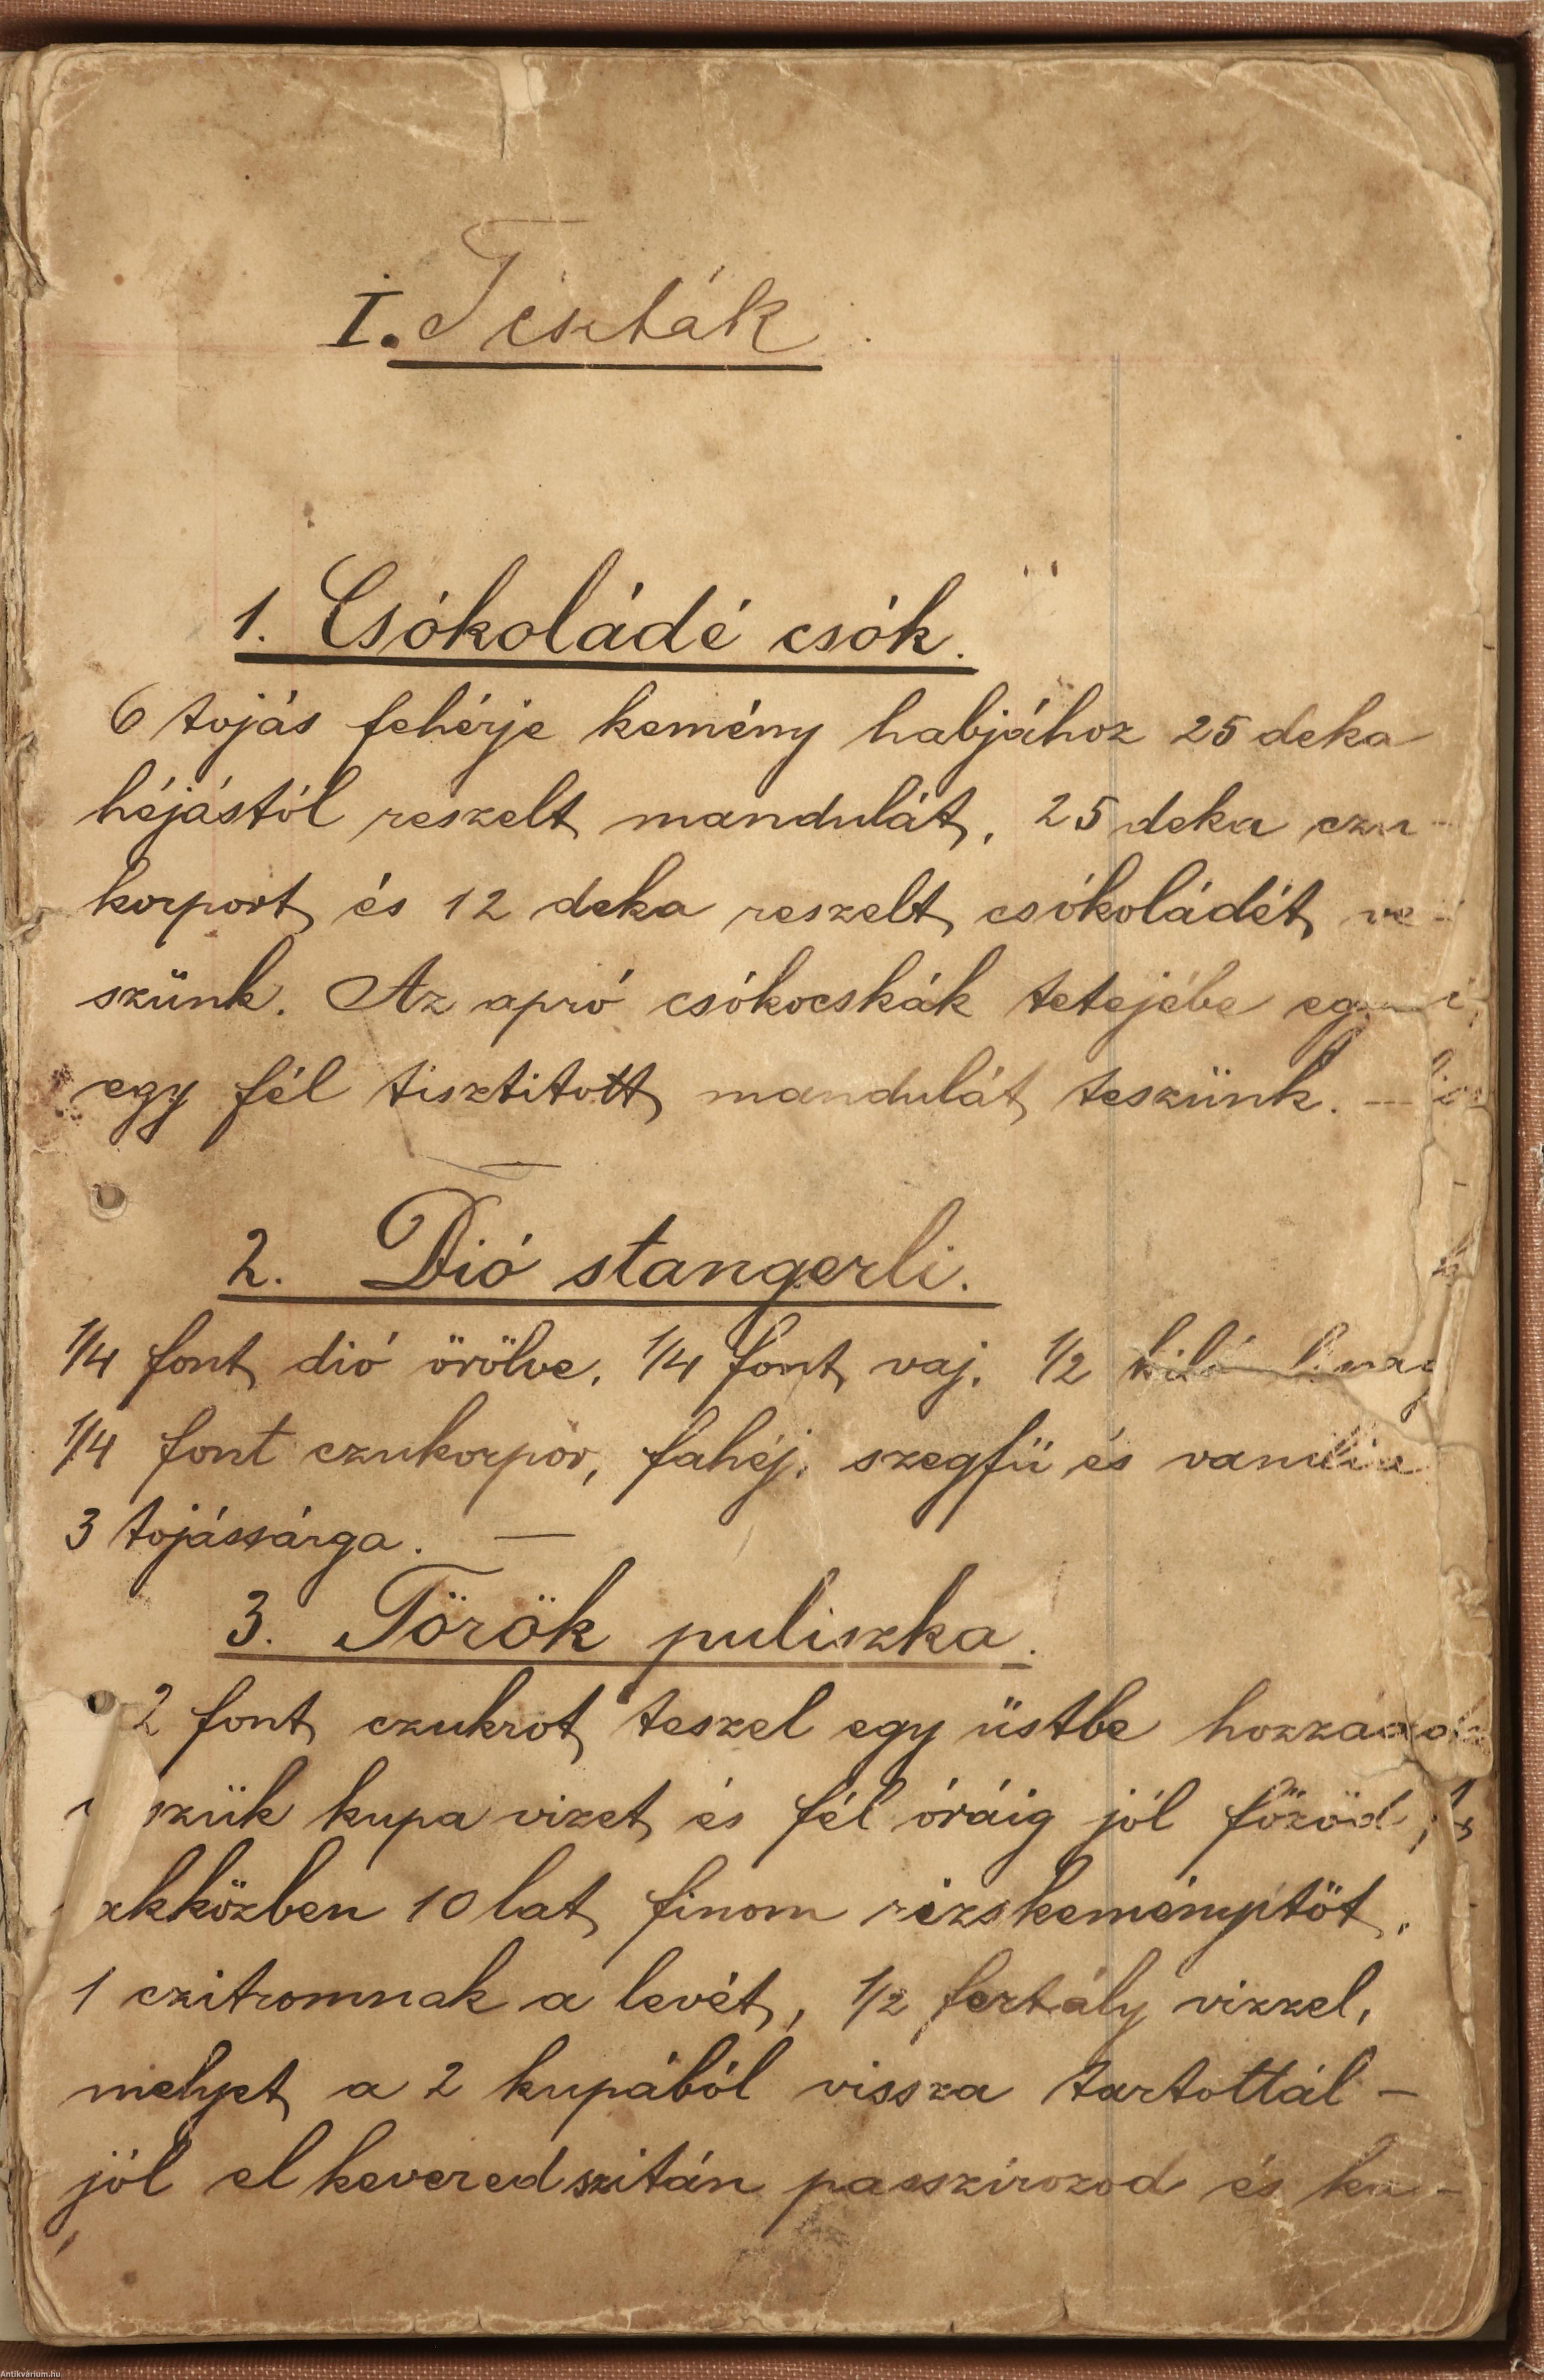 I. Tészták
1. Csókoládé csók.
6 tojás fehérje kemény habjához 25 deka
héjástól reszelt mandulát, 25 deka czu-
korport és 12 deka reszelt csókoládét ve-
szünk. Az apró csókocskák tetejébe
egy fél tisztitott mandulát teszünk. —
2. Dió stangerli.
1/4 font dió örölve, 1/4 font vaj, 1/2 kiló
1/4 font czukorpor, fahéj, szegfü és vanilia
3 tojássárga. —
3. Török puliszka.
2 font czukrot teszel egy üstbe
kupa vizet és fél óráig jól fözöd,
10 lat finom rizskeményitöt,
1 czitromnak a levét, 1/2 fertály vizzel,
melyet a 2 kupából vissza tartottál –
jól el kevered szitán passzirozod és
Antikvárium.hu